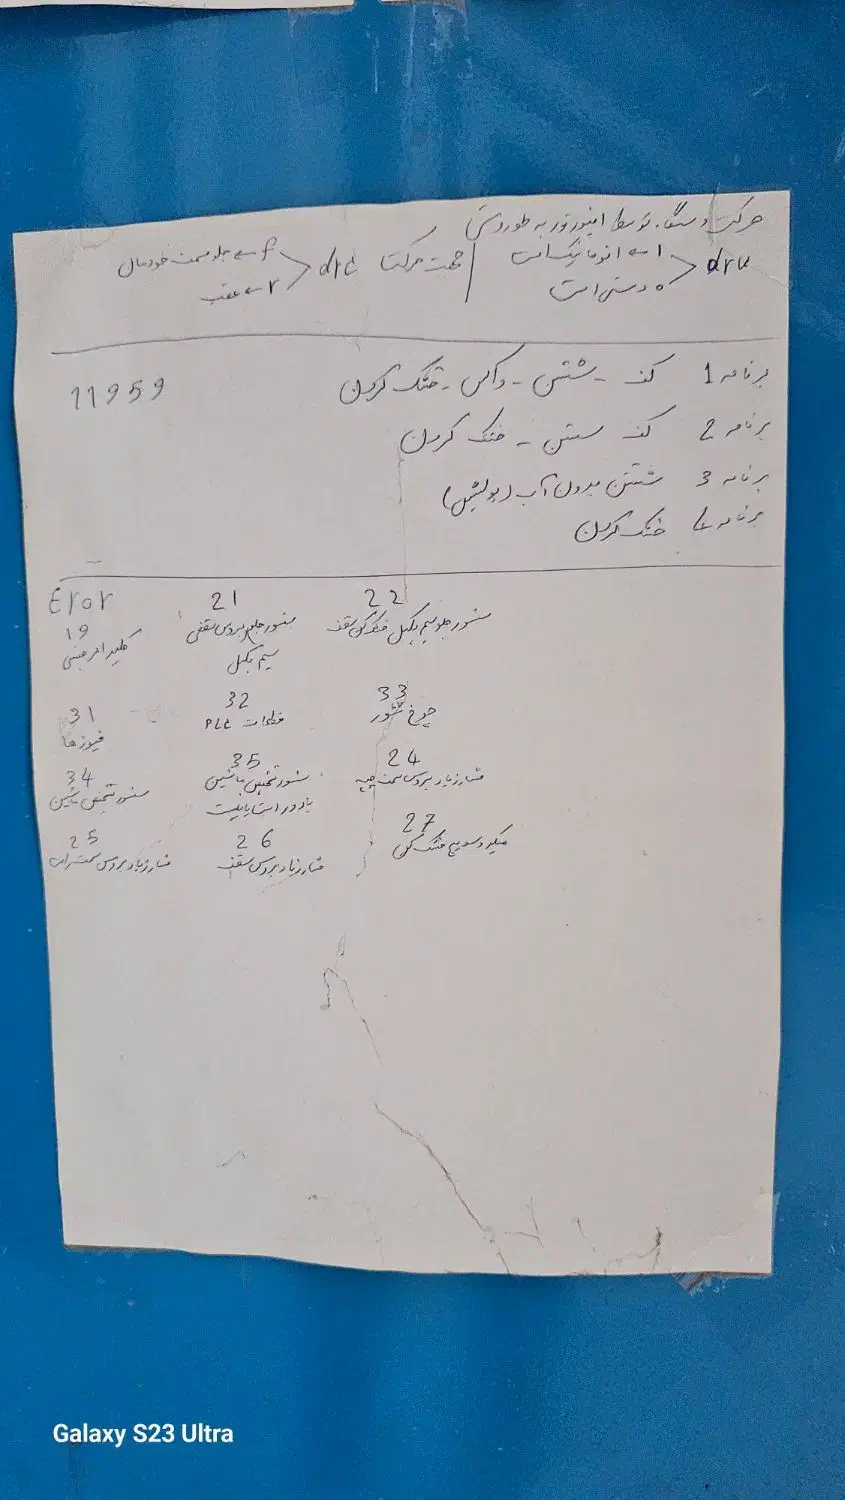 حرکت دستگاه توسط اینورتور به طور دستی
dru < 1 ← اتوماتیک است
0 دستی است
جهت حرکت drc < f ← جلو سمت خودمان
r ← عقب
برنامه 1 کف - شستن - واکس - خشک کردن
11959
برنامه 2 کف شستن - خشک کردن
برنامه 3 شستن بدون آب (پولیش)
برنامه 4 خشک کردن
Eror
19 کلید امرجنسی
21 سنسور جلو بروس سقفی
سیم بکسل
22 سنسور جلو سیم بکسل خشک کن سقف
31 فیوزها
32 قطعات PLC
33 چرخ شور
34 سنسور تشخیص ماشین
35 سنسور تشخیص ماشین
24 فشار زیاد بروس سمت چپ
25 فشار زیاد بروس سمت راست
26 فشار زیاد بروس سقف
27 میکروسویچ خشک کن
Galaxy S23 Ultra